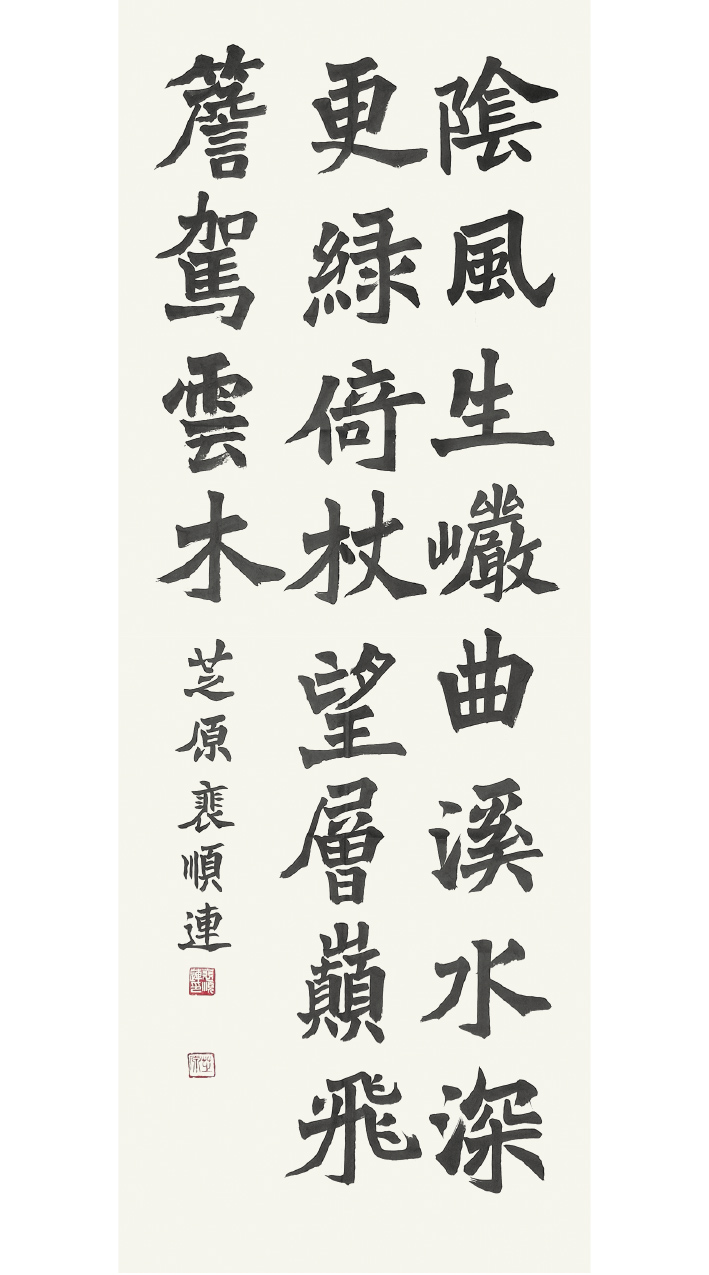 隂風生巗曲溪水深
更緑倚杖望層巔飛
簷駕雲木
芝原裵順連